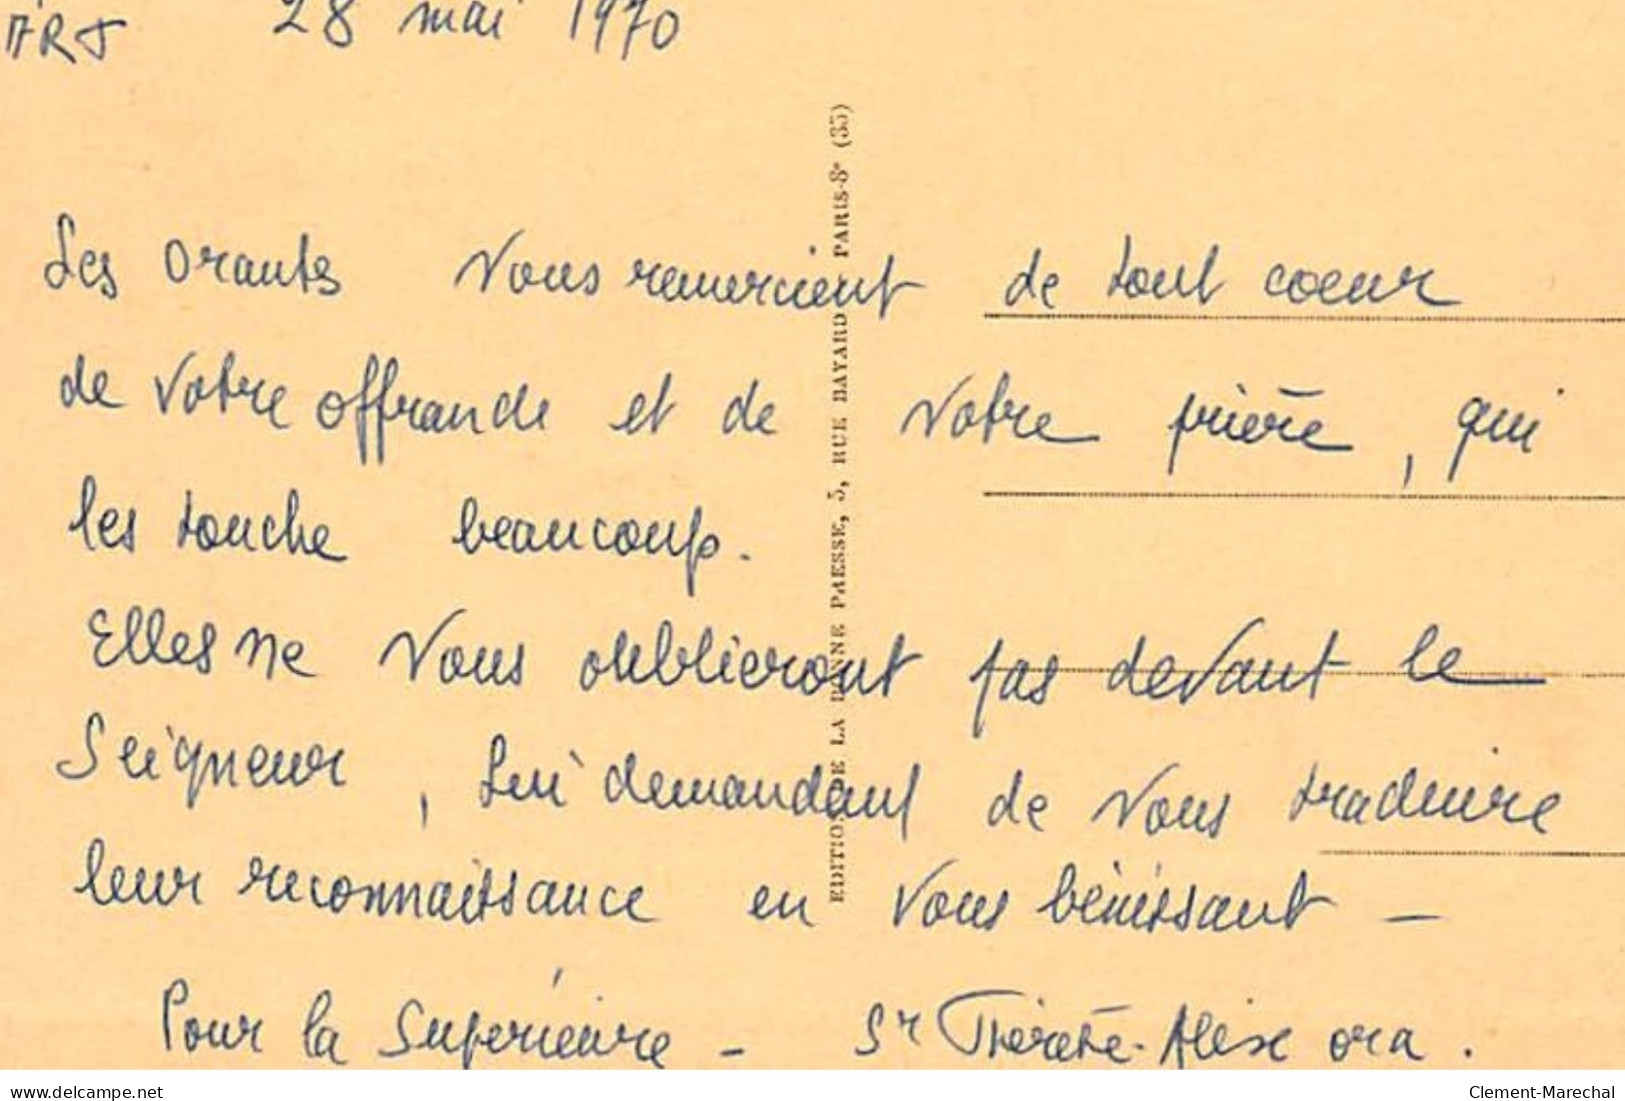 28 mai 1970
Les Orants vous remercient de tout coeur
de votre offrande et de votre prière, qui
les touche beaucoup.
Elles ne vous oublieront pas devant le
Seigneur, Lui demandant de vous traduire
leur reconnaissance en vous bénissant -
Pour la Supérieure - Sr Thérèse-Alix ora.
EDITION DE LA BONNE PAESSE, 5, RUE BAYARD PARIS-8e (35)
delcampe.net
Clement-Marechal